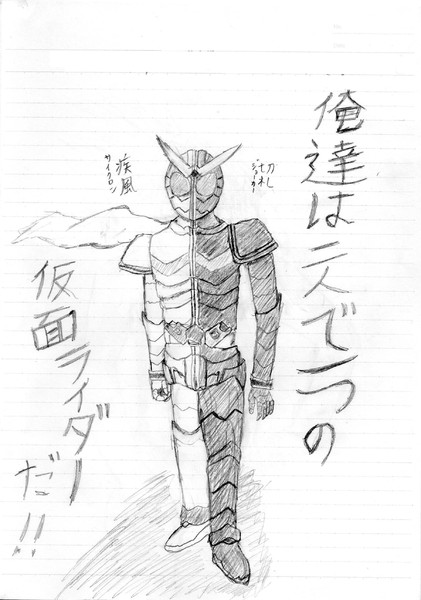 俺達は二人で一つの
仮面ライダー
だ!!
切札
ジョーカー
疾風
サイクロン